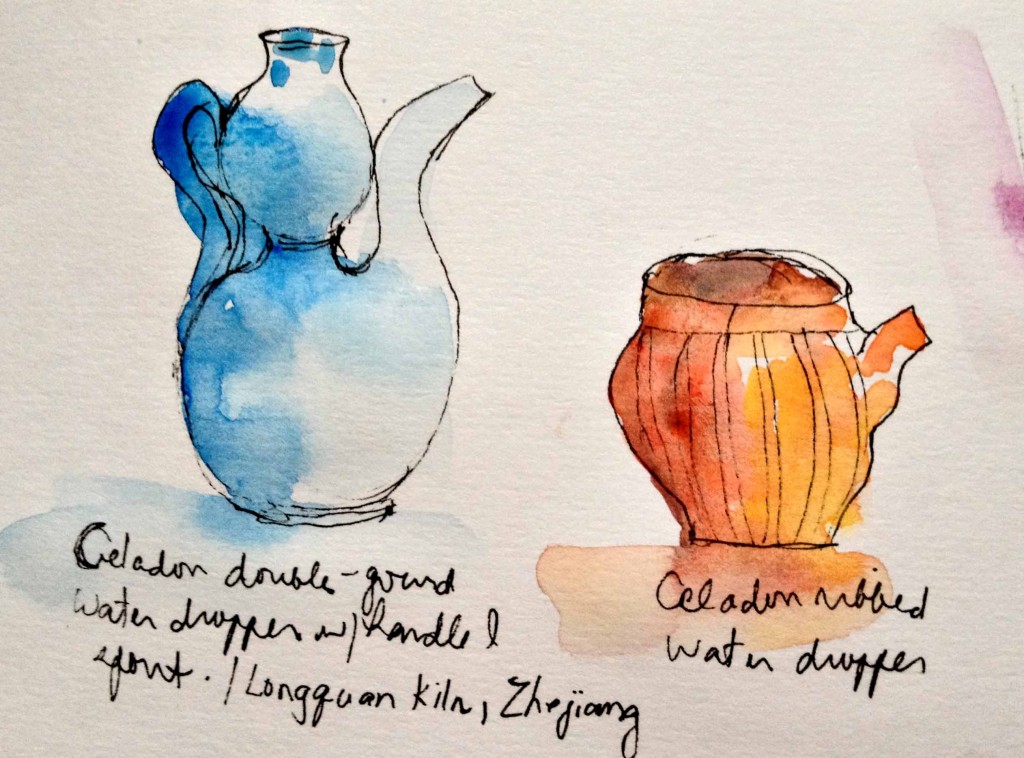 Celadon double-gourd
water dropper w/ handle &
spout. / Longquan Kiln, Zhejiang
Celadon ribbed
water dropper